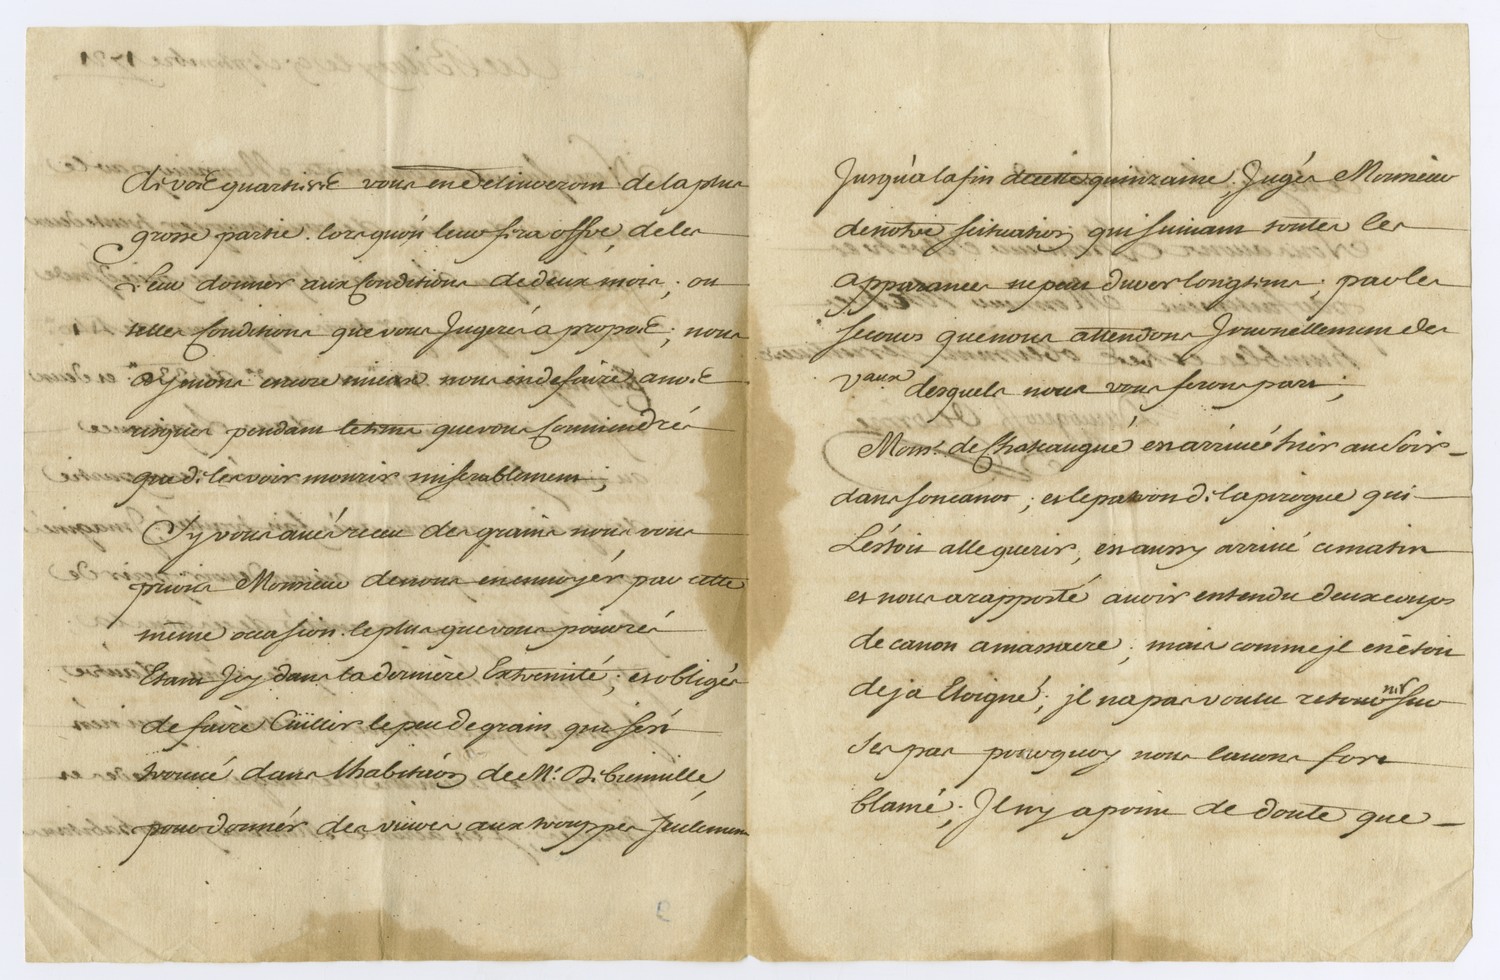 de votre quartier vous en delivreront de la plus
grosse partie. lors qu'on leur fera offre, de les
Leur donner aux Conditions de deux mois; ou
telles Conditions que vous Jugerés a propos; nous
aymons encore mieux nous en defaire a nos
risques pendant letems que vous Conviendrés
que de les voir mourir miserablement;
Sy vous avés receu des grains nous vous
prions Monsieur de nous en envoyér par cette
même occasion. le plus que vous pourrés
Etant Jcy dans la derniere Extremité; et obligés
de faire Cüillir le peu de grain qui s'est
trouvé dans l'habitation de Mr. De bienville,
pour donnér des vivres aux trouppes seulement
Jusqu'a la fin de cette quinzaine, Jugés Monsieur
de notre scituation, qui suivant toutes les
apparances ne peut durer longtems; par les
secours que nous attendons Journellement des
vaux desquels nous vous ferons part;
Monsr. de Chateaugué est arrivé hier au Soir
dans son canot; et le patron de la pirogue qui
L'éstoit allé querir, est aussy arrivé ce matin
et nous a rapporté avoir entendu deux coups
de canon a massacre; mais comme jl en étoit
deja Eloigné; jl na pas voulu retournir sur
ses pas pourquoy nous lavons fort
blamé; Jl ny a point de doute que